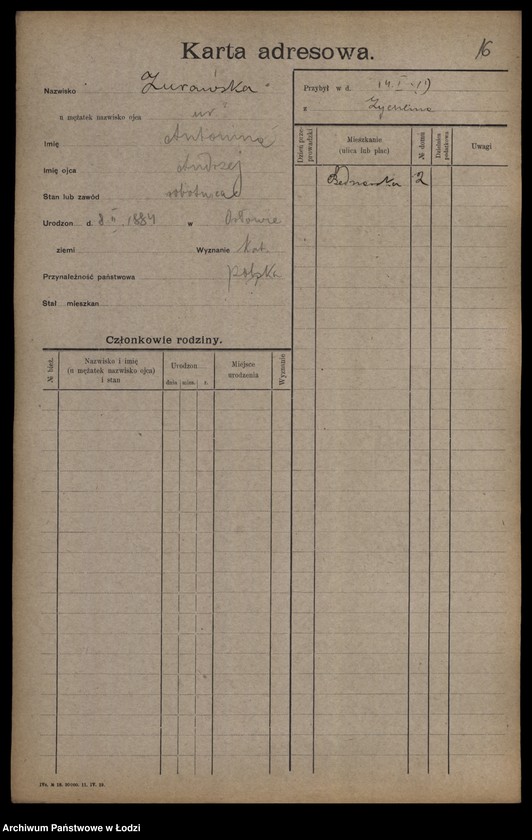 Karta adresowa.
16
Nazwisko Żurawska
u mężatek nazwisko ojca
Imię Antonina
Imię ojca Andrzej
Stan lub zawód robotnica
Urodzon d. 8 II 1884 w
ziemi Wyznanie kat.
Przynależność państwowa polska
Stał mieszkan
Członkowie rodziny.
№ bież.
Nazwisko i imię
(u mężatek nazwisko ojca)
i stan
Urodzon
dnia mies. r.
Miejsce
urodzenia
Wyznanie
Przybył w d. 14 I 19
z Żychlina
Dzień prze-
prowadzki
Mieszkanie
(ulica lub plac)
№ domu
Dzielnica
podatkowa
Uwagi
Bednarska 2
IVa. № 18. 50000. 11. IV. 19.
Archiwum Państwowe w Łodzi